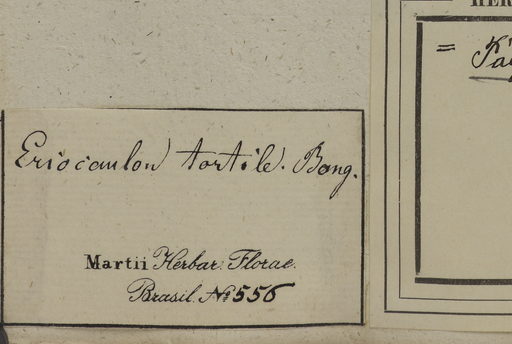 HER
= Pa
Eriocaulon tortile. Bong.
Martii Herbar. Florae
Brasil. No 556